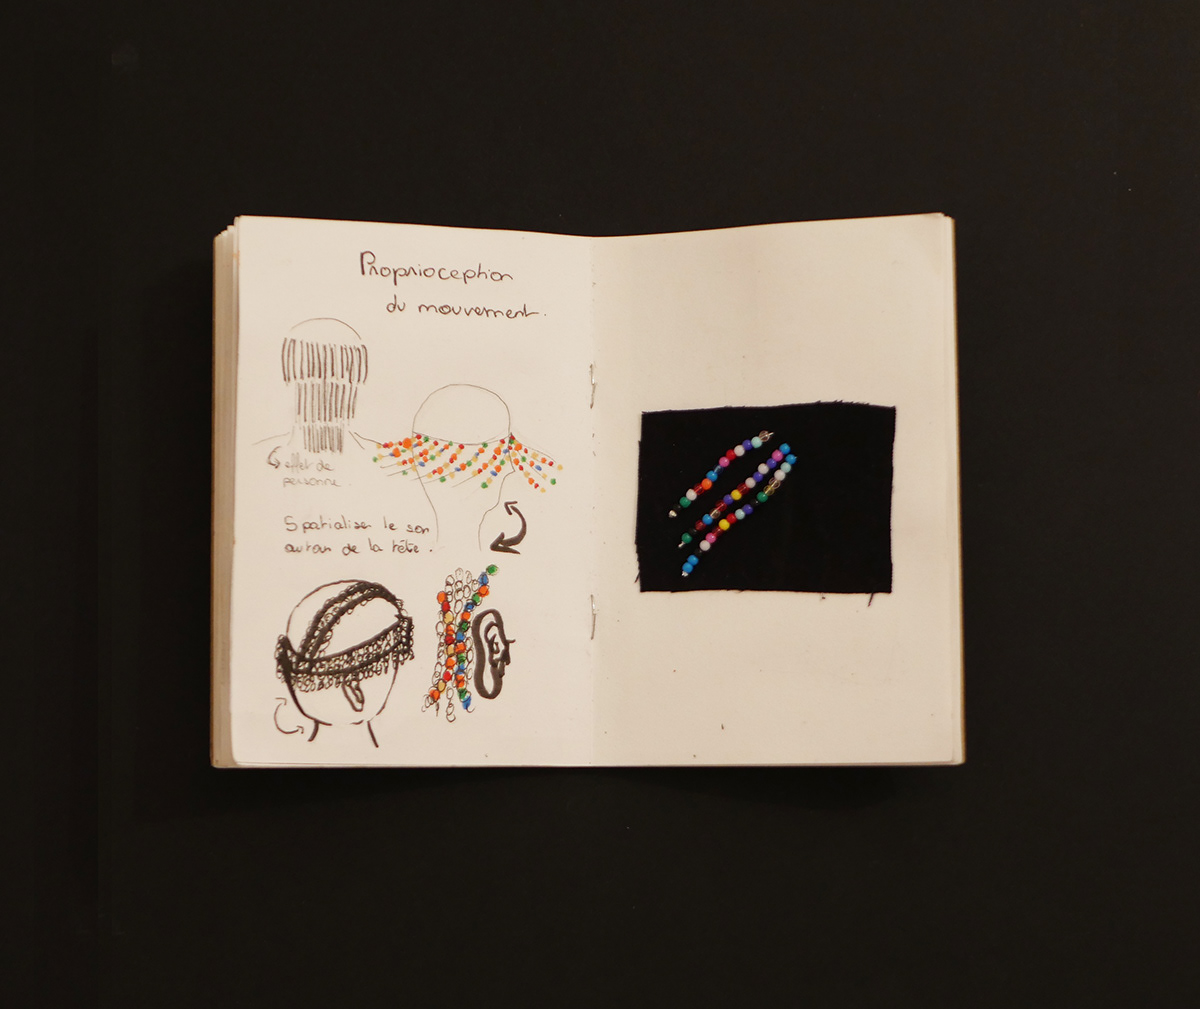 Proprioception
du mouvement.
effet de
personne.
Spatialiser le son
autour de la tête.